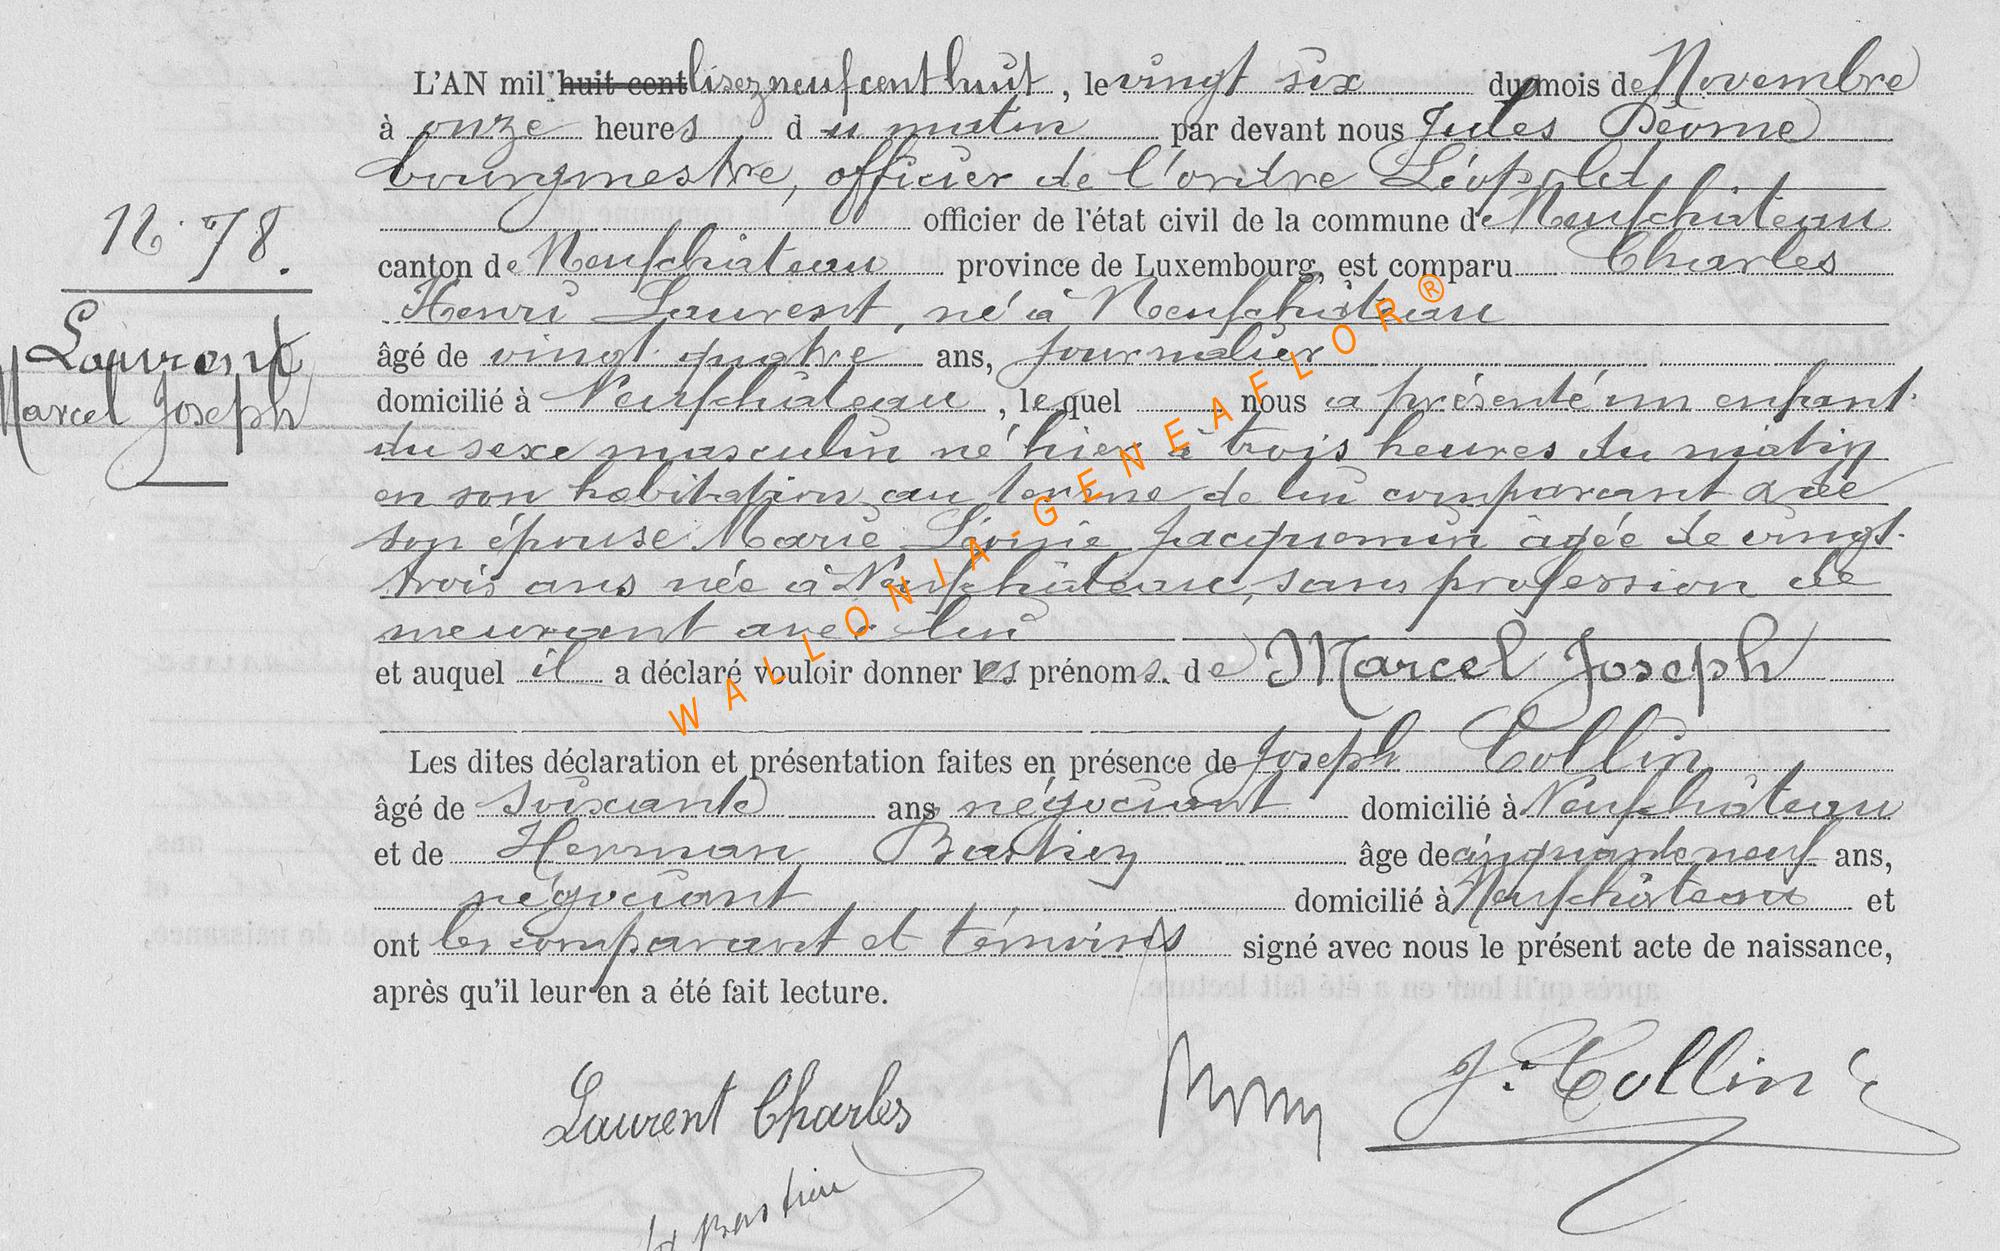 L'AN mil huit cent lisez neuf cent huit, le vingt six du mois de Novembre
à onze heures du matin par devant nous Jules Déome
bourgmestre, officier de l'ordre Léopold,
N. 78.
officier de l'état civil de la commune de Neufchâteau
canton de Neufchâteau province de Luxembourg, est comparu Charles
Henri Laurent, né à Neufchâteau
Laurent
âgé de vingt quatre ans, journalier
Marcel Joseph
domicilié à Neufchâteau, lequel nous a présenté un enfant
du sexe masculin né hier à trois heures du matin
en son habitation au terme de lui comparant
son épouse Marie Léonie Jacquemin âgée de vingt
trois ans née à Neufchâteau, sans profession de
meurant avec lui
et auquel il a déclaré vouloir donner les prénoms. de Marcel Joseph
WALLONIA-GENEAFLOR®
Les dites déclaration et présentation faites en présence de Joseph Collin
âgé de soixante ans négociant domicilié à Neufchâteau
et de Herman Bastien âge de cinquante neuf ans,
négociant domicilié à Neufchâteau et
ont les comparant et témoins signé avec nous le présent acte de naissance,
après qu'il leur en a été fait lecture.
J. Collin
Laurent Charles
Bastien